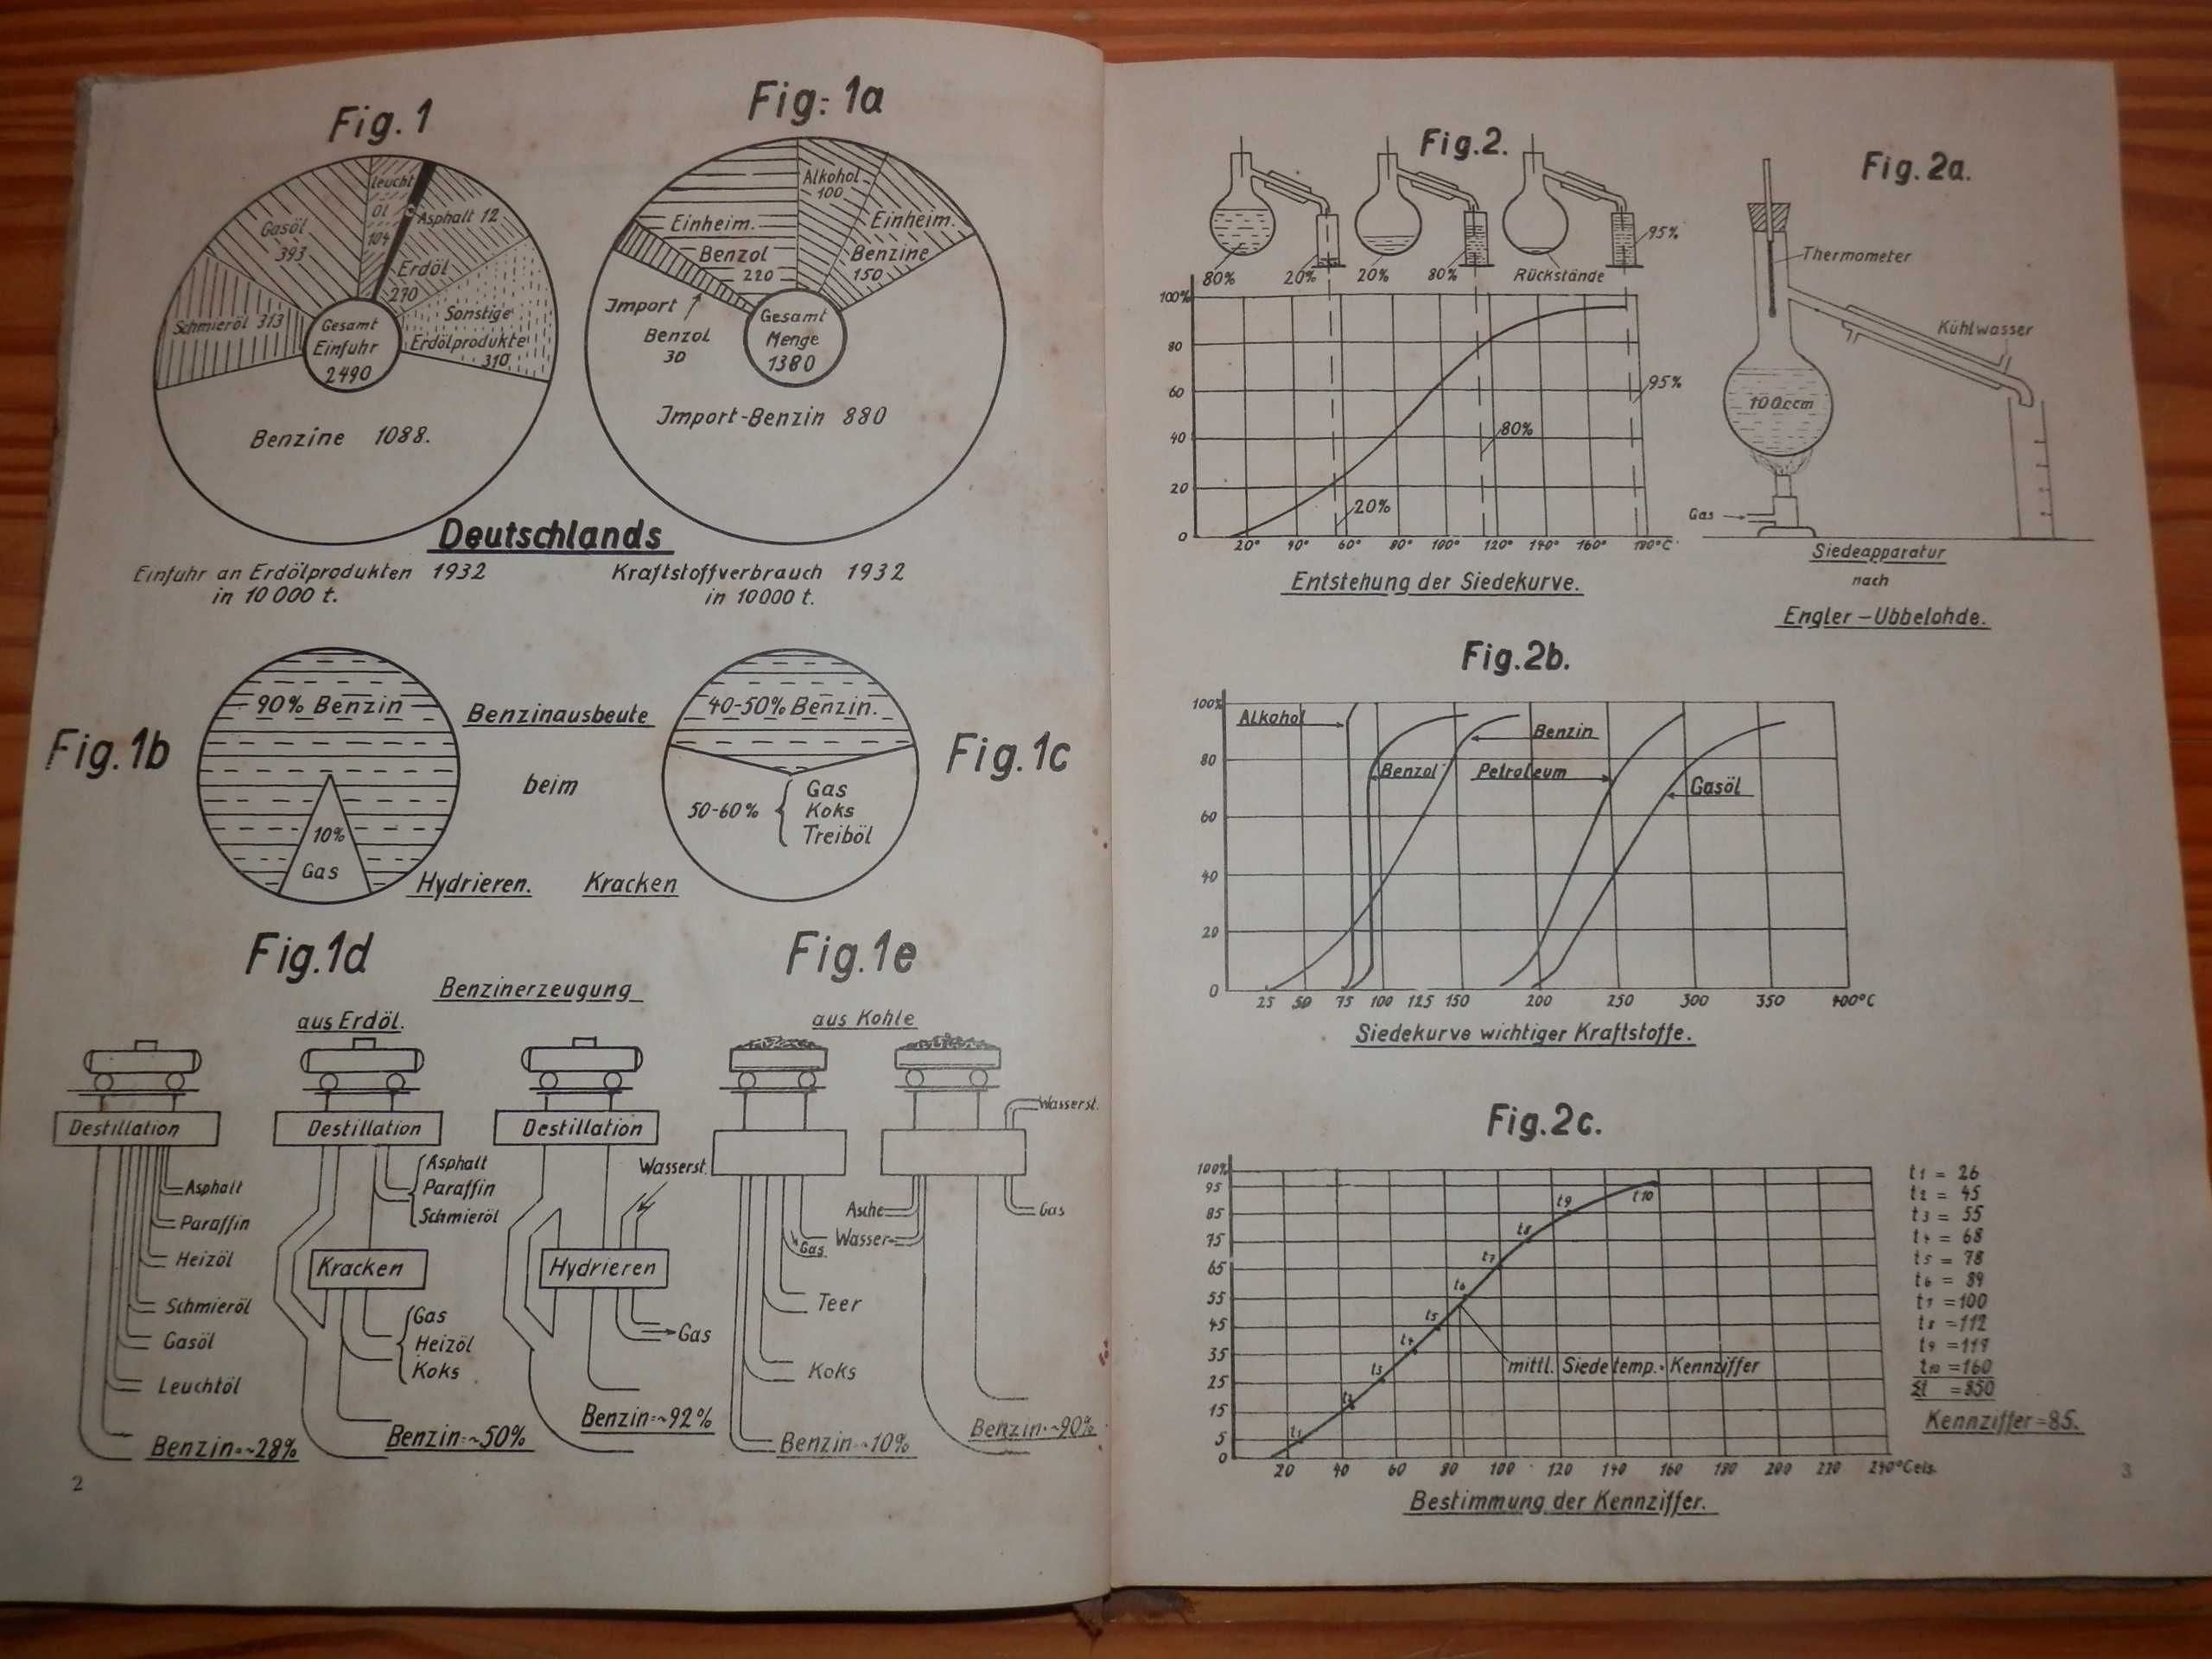 Fig. 1
Leucht
Öl
104
Asphalt 12
Gasöl
393
Erdöl
270
Schmieröl 313
Gesamt
Einfuhr
2490
Sonstige
Erdölprodukte
310
Benzine 1088.
Fig. 1a
Alkohol
100
Einheim.
Benzol
220
Einheim.
Benzine
150
Import
Benzol
30
Gesamt
Menge
1380
Import-Benzin 880
Deutschlands
Einfuhr an Erdölprodukten 1932
in 10 000 t.
Kraftstoffverbrauch 1932
in 10000 t.
Fig.1b
90% Benzin
10%
Gas
Benzinausbeute
beim
Hydrieren.
Kracken
40-50% Benzin.
50-60%
Gas
Koks
Treiböl
Fig.1c
Fig.1d
Fig.1e
Benzinerzeugung
aus Erdöl.
aus Kohle
Destillation
Asphalt
Paraffin
Heizöl
Schmieröl
Gasöl
Leuchtöl
Benzin=~28%
Destillation
Asphalt
Paraffin
Schmieröl
Kracken
Gas
Heizöl
Koks
Benzin=~50%
Destillation
Wasserst.
Hydrieren
Gas
Benzin=~92%
Gas
Teer
Koks
Benzin=~10%
Wasserst.
Asche
Wasser
Gas
Benzin=~90%
2
Fig.2.
80% 20% 20% 80% Rückstände
95%
100%
80
60
40
20
0
95%
80%
20%
20° 40° 60° 80° 100° 120° 140° 160° 180°C
Entstehung der Siedekurve.
Fig.2a.
Thermometer
Kühlwasser
100ccm
Gas
Siedeapparatur
nach
Engler – Ubbelohde.
Fig.2b.
100%
80
60
40
20
0
Alkohol
Benzin
Benzol
Petroleum
Gasöl
25 50 75 100 125 150 200 250 300 350 400°C
Siedekurve wichtiger Kraftstoffe.
Fig.2c.
100%
95
85
75
65
55
45
35
25
15
5
0
t1
t2
t3
t4
t5
t6
t7
t8
t9
t10
mittl. Siedetemp.=Kennziffer
20 40 60 80 100 120 140 160 180 200 220 240°Cels.
Bestimmung der Kennziffer.
t1 = 26
t2 = 45
t3 = 55
t4 = 68
t5 = 78
t6 = 89
t7 =100
t8 =112
t9 =117
t10 =160
Σt =850
Kennziffer=85.
3